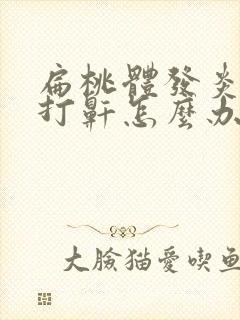 扁桃體發炎
打鼾怎麼办
大臉猫愛喫鱼